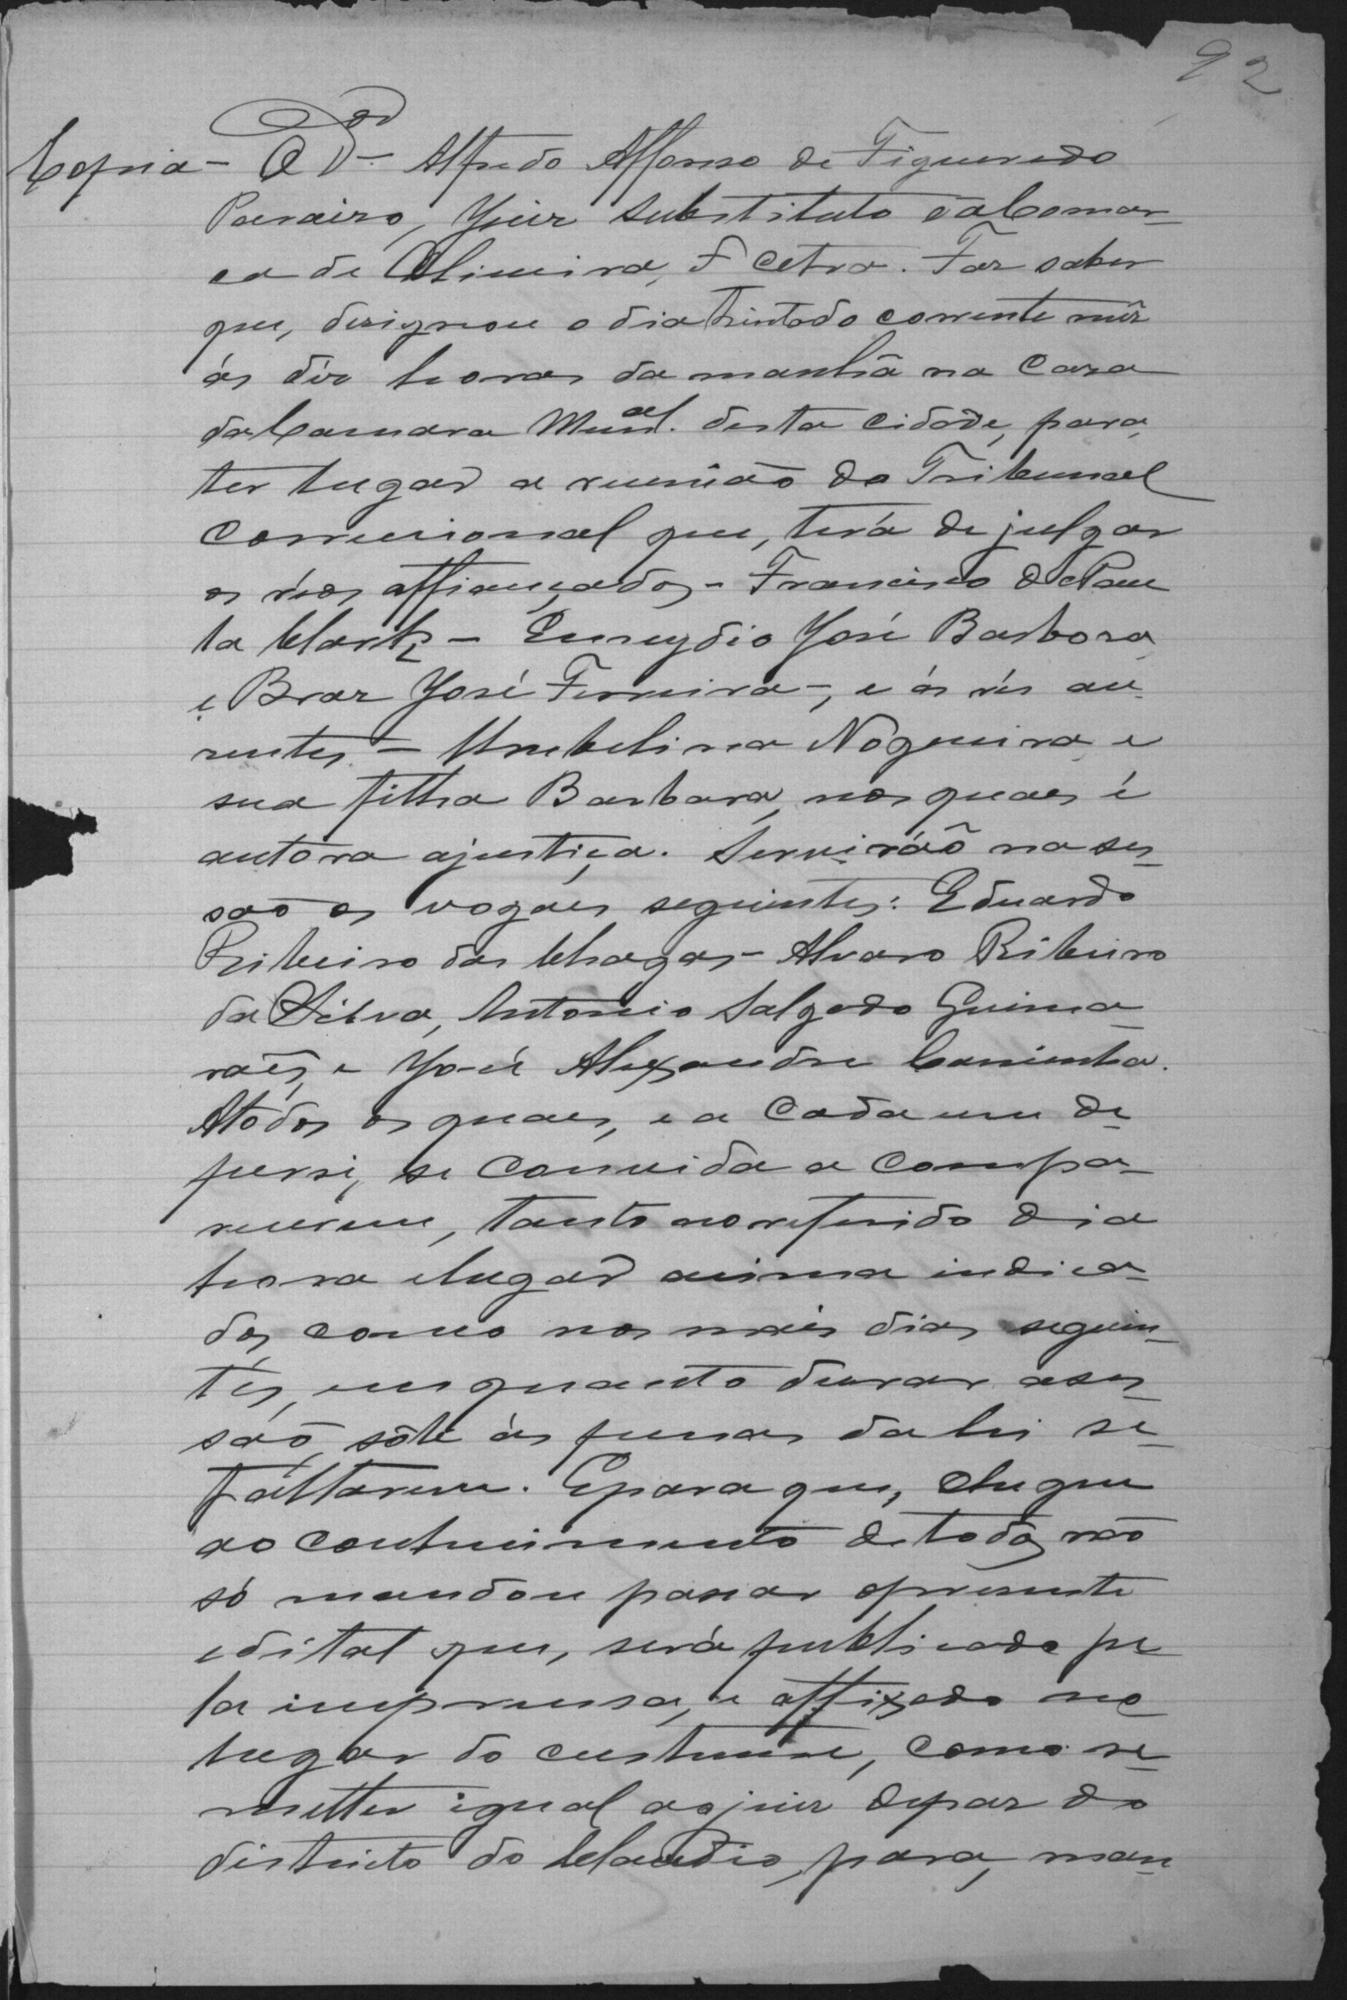 92
Copia - O Dor Alfredo Affonso de Figueredo
Paraizo, Juiz substituto da Comar-
ca de Oliveira, & Cetra. Faz saber
que, designou o dia trinta do corrente mêz
ás déz horas da manhã na Caza
da Camara Munal. desta cidade, para,
ter lugar a reunião do Tribunal
Correcional que, terá de julgar
os réos affiançados - Francisco de Pau
la Clark - Emygdio José Barbosa,
e Braz José Ferreira -, e ás rés au-
zentes - Umbelina Nogueira e
sua filha Barbara, nos quaes é
autora ajustiça. Servirãõ na ses-
são os vogaes seguintes: Eduardo
Ribeiro das Chagas - Alvaro Ribeiro
da Silva, Antonio Salgado Guima-
rães, e José Alexandre Caminha.
Atodos os quaes, e a cada um de
persi, se convida a compa-
recerem, tanto no referido dia
hora elugar acima indica-
dos, como nos mais dias seguin-
tes, emquanto durar ases-
são, sób ás penas da lei se-
faltarem. Epara que, chegue
ao conhecimento de todos, não
só mandou passar opresente
edital que, será publicado pe
la imprensa, e affixado no
lugar do custume, como re-
metter igual aojuiz depaz do
districto do Claudio, para, man-